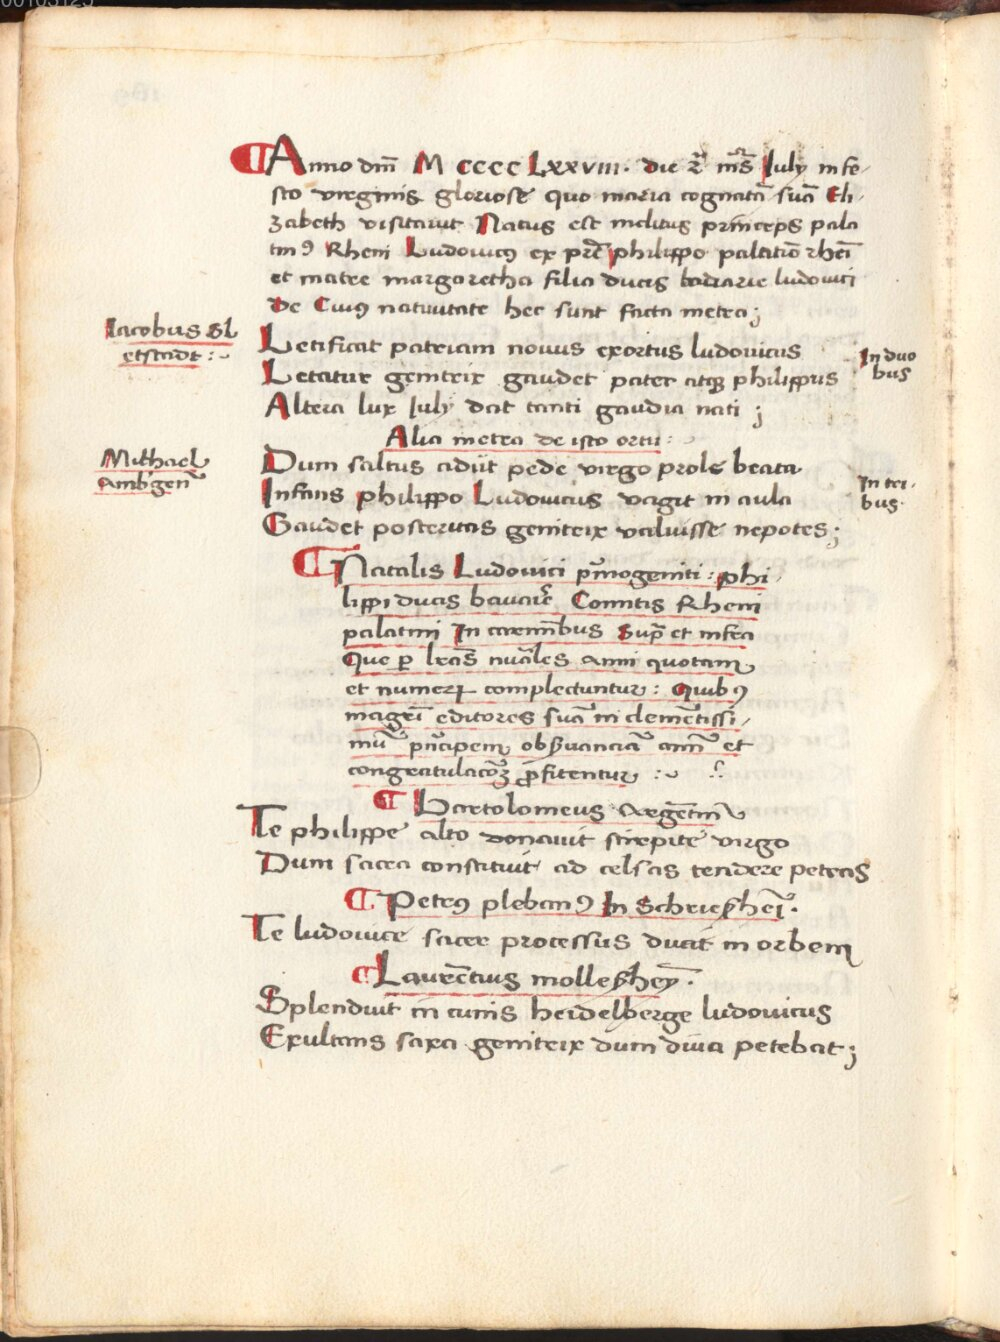 00103125
Anno dm̄ M cccc Lxxviii. die 2ᵃ mēs July in fe-
sto virginis gloriose quo maria cognatā suā Eli-
zabeth visitavit Natus est inclitus princeps pala
tinꝰ Rheni Ludovicꝰ ex prē philippo paltatiō rhēi
et matre margaretha filia ducis bavarie ludovici
De Cuiꝰ nativitate hec sunt facta metra;
Iacobus Sl
etstadt:
Letificat patriam novus exortus ludovicus
In duo
bus
Letatur genitrix gaudet pater atqꝫ philippus
Altera lux July dat tanti gaudia nati;
Alia metra de isto ortu:
Michael
Ambgen̄
Dum saltus adiit pede virgo prole beata
Infans philippo Ludovicus vagit in aula
In tri-
bus.
Gaudet posteritas genitrix valuisse nepotes;
Natalis Ludovici pͥmogeniti: phi-
lippi ducis bavarīe Comitis Rheni
palatini In carmībus Supͣ et infra
Que ꝑ lrās nūales anni quotam
et numerꝝ complectuntur: Quibꝰ
magrī editores suā in clemētissi-
mū pͥncipem obsͣvanciā aninū et
congratulacōꝫ ꝓfitentur:
Bartolomeus Argētin
Te philippe alto donavit stirpite virgo
Dum sacra constituit ad celsas tendere petras
Petrꝰ plebanꝰ In Schrieshēi.
Te ludovice sacer processus ducit in orbem
Laurētius mollesheȳ.
Splenduit in cunis heidelberge ludovicus
Exultans saxa genitrix dum diva petebat;